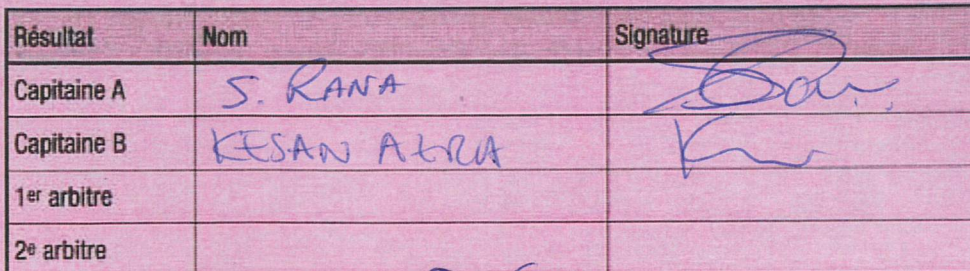 Résultat Nom Signature
Capitaine A S. RANA
Capitaine B KESAN
1er arbitre
2e arbitre